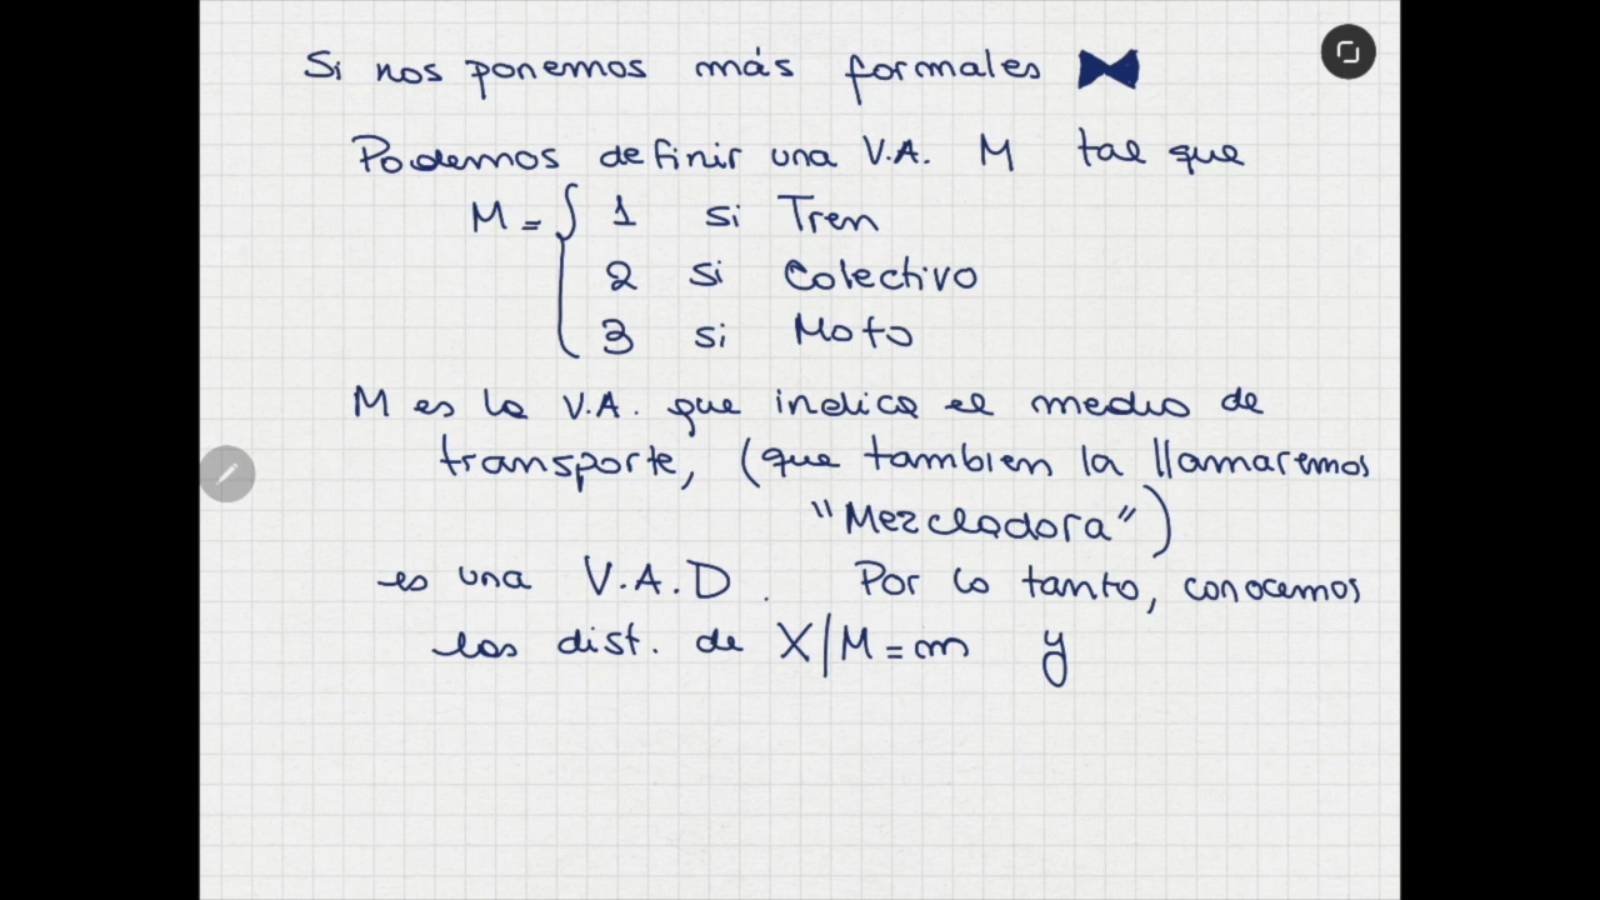 Si nos ponemos más formales
Podemos definir una V.A. M tal que
M = { 1 si Tren
2 si Colectivo
3 si Moto
M es la V.A. que indica el medio de
transporte, (que tambien la llamaremos
"Mezcladora")
es una V.A.D. Por lo tanto, conocemos
las dist. de X|M=m y